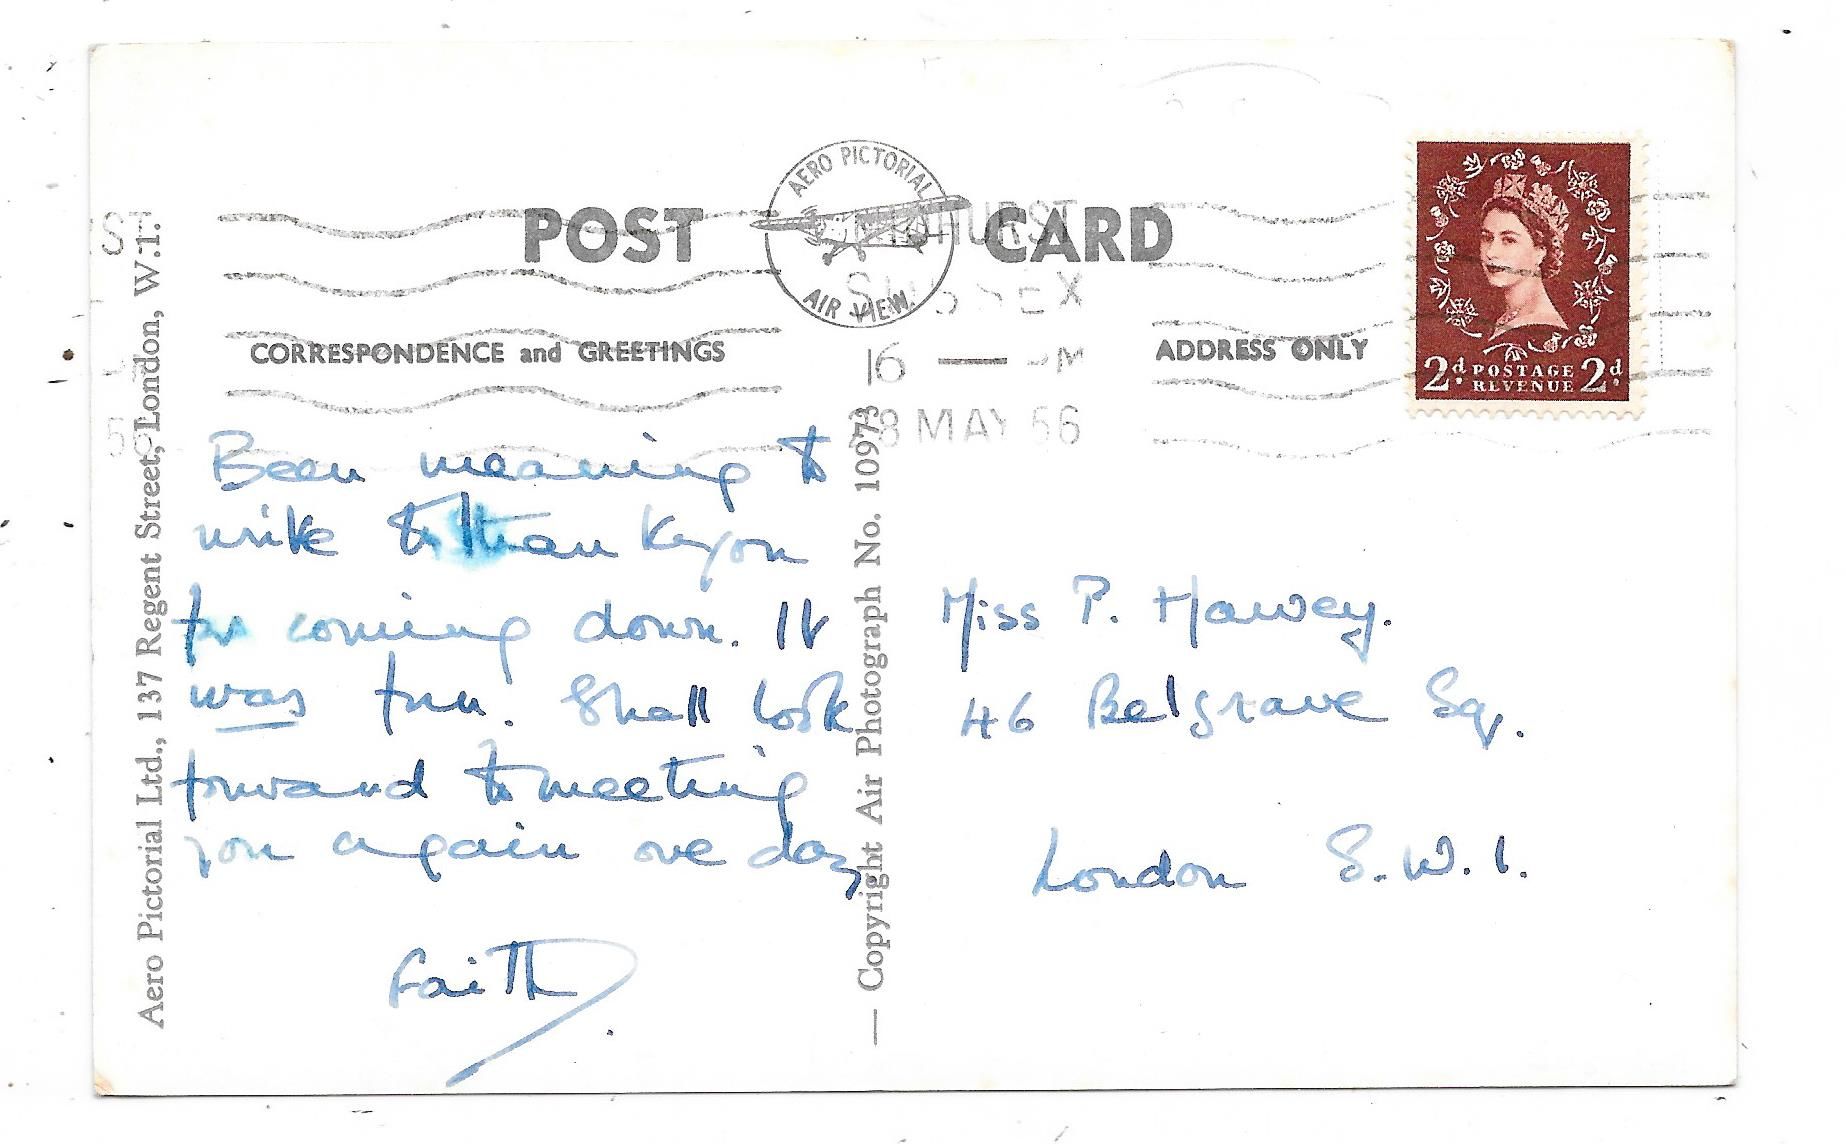 POST CARD
AERO PICTORIAL
AIR VIEW.
CORRESPONDENCE and GREETINGS
ADDRESS ONLY
HURST
SUSSEX
6 — PM
8 MAY 56
2d. POSTAGE REVENUE 2d.
Aero Pictorial Ltd., 137 Regent Street, London, W.1.
— Copyright Air Photograph No. 10973
Been meaning to
write to thank you
for coming down. It
was fun. Shall look
forward to meeting
you again one day
Faith.
Miss P.
46 Belgrave Sq.
London S.W.1.